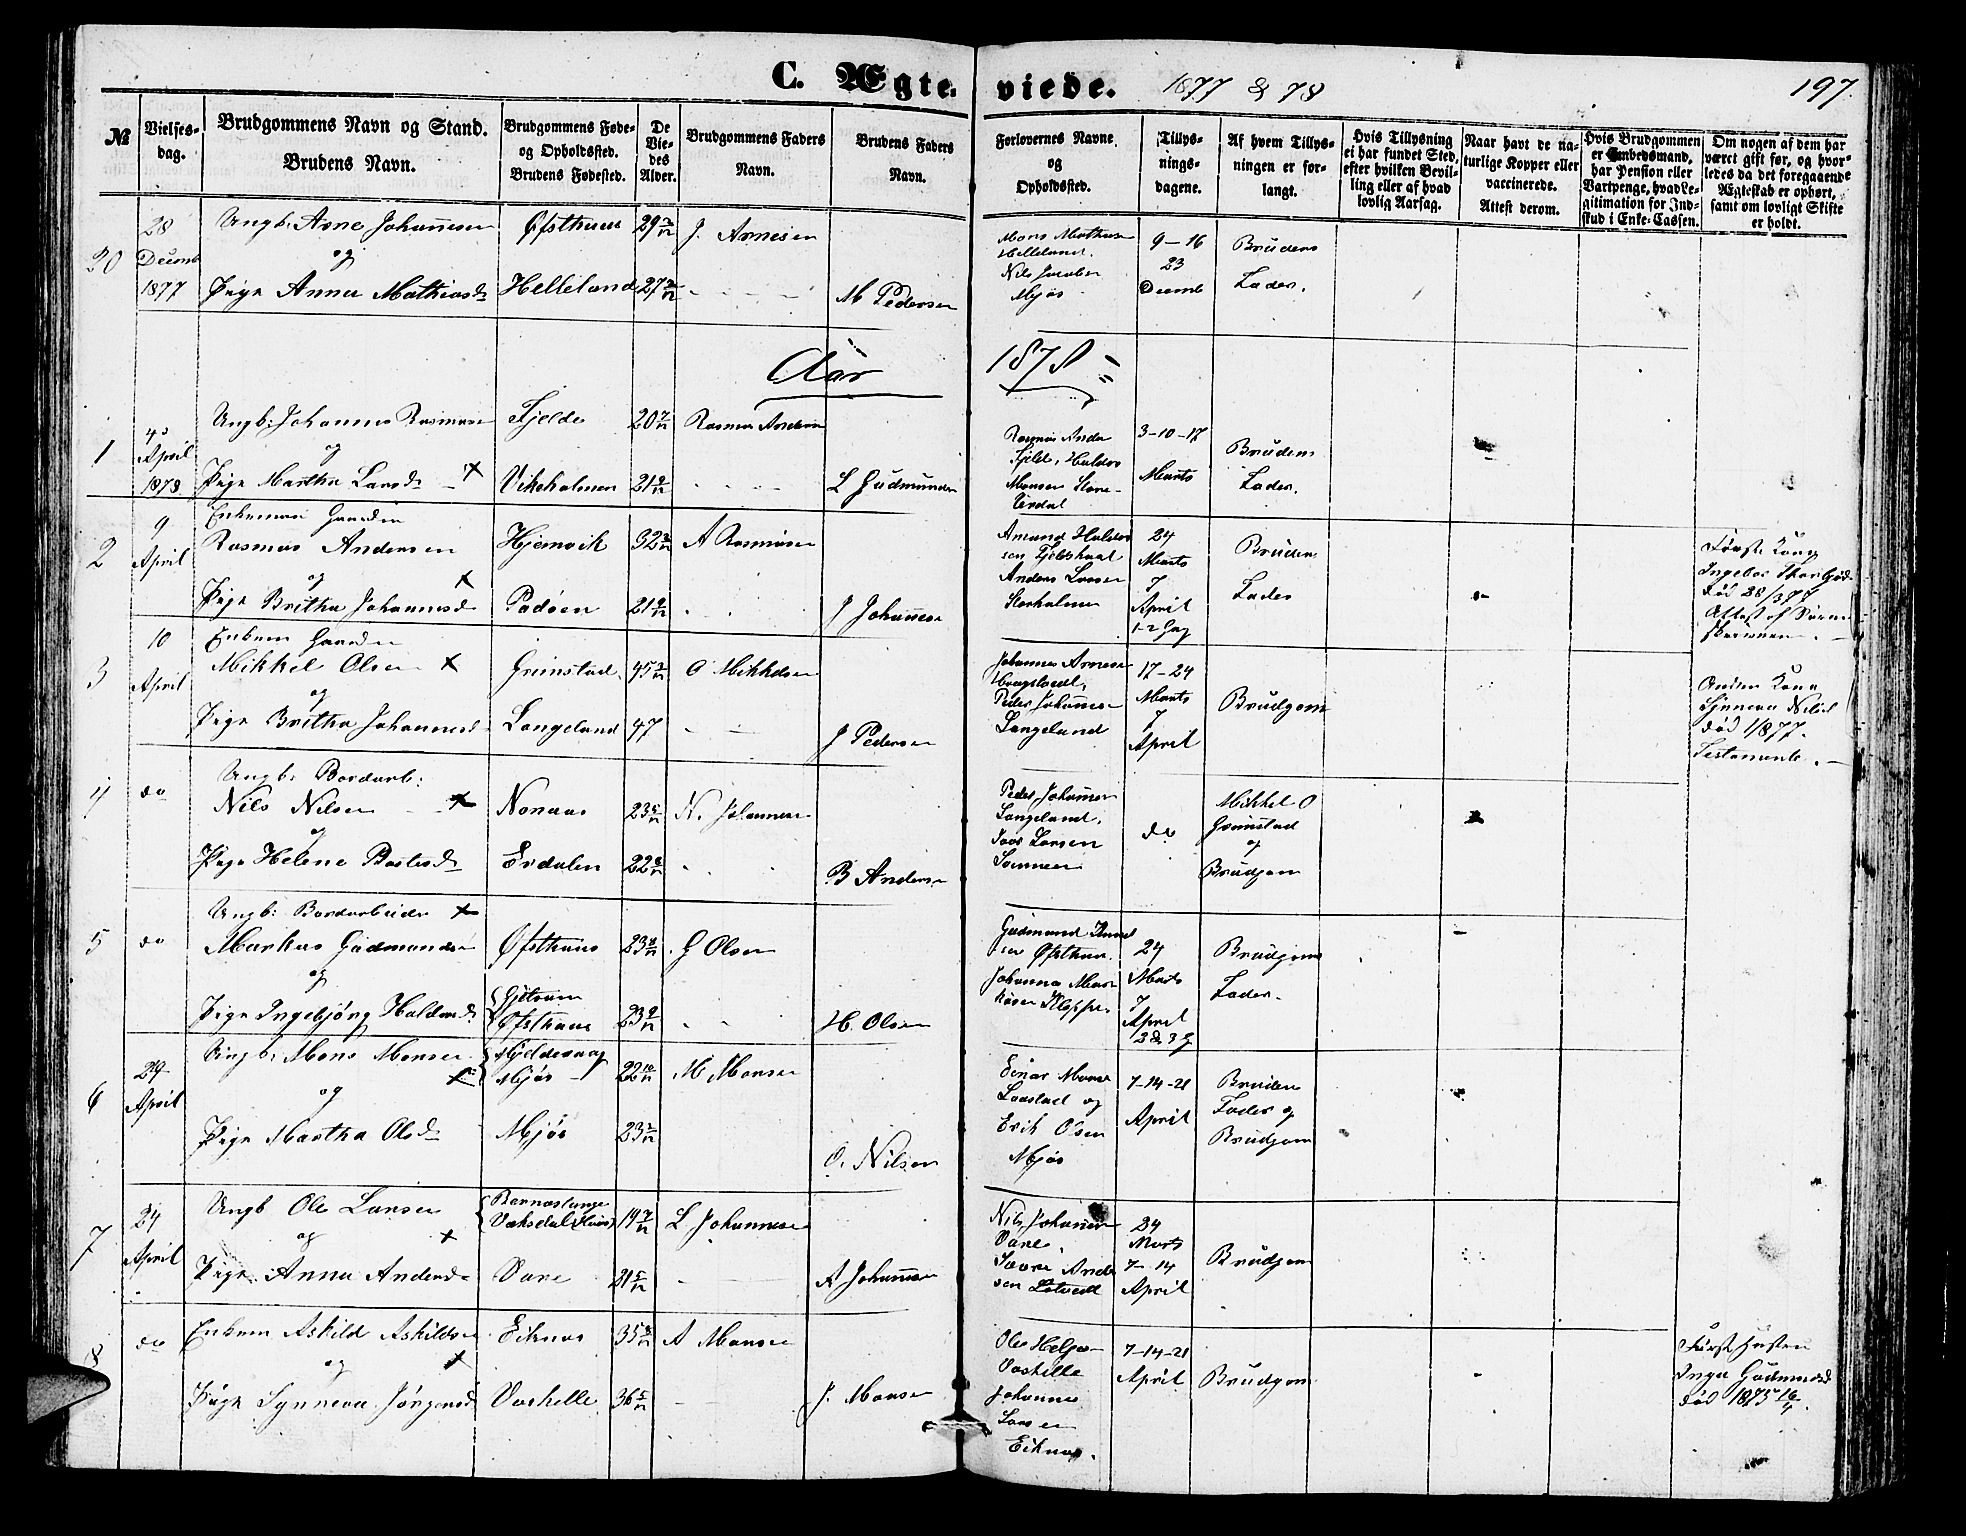 C. Ægte-
viede. 1877 & 78
197
№
Vielses-
dag.
Brudgommens Navn og Stand.
Brudens Navn.
Brudgommens Føde-
og Opholdssted.
Brudens Fødested.
De
Vie-
des
Alder.
Brudgommens Faders
Navn.
Brudens Faders
Navn.
Forlovernes Navne
og
Opholdssted.
Tillys-
nings-
dagene.
Af hvem Tillys-
ningen er for-
langt.
Hvis Tillysning
ei har fundet Sted,
efter hvilken Bevil-
ling eller af hvad
lovlig Aarsag.
Naar havt de na-
turlige Kopper eller
vaccinerede.
Attest derom.
Hvis Brudgommen
er Embedsmand,
har Pension eller
Vartpenge, hvad Le-
gitimation for Ind-
skud i Enke-Cassen.
Om nogen af dem har
været gift før, og hvor-
ledes da det foregaaende
Ægteskab er ophørt,
samt om lovligt Skifte
er holdt.
20
28
Decemb
1877
Ungk. Arne Johannesen
og
Pige Anna Mathiasd
Øfsthuus 29
Helleland 27
J. Arnesen
M Pedersen
Mons Mathias
Helleland
Nils Jacobsen
Mjøs
9-16
23
Decemb
Brudens
Fader.
Aar 1878
1
April
1878
Ungk. Johannes Rasmusen
og
Pige Martha Larsd
Fjelde 20
Vikeholmen 21
Rasmus Andersen
L Gudmunds
Rasmus Ander
Fjeld, Haldor
Monsen Store-
Urdal
3-10-17
Marts
Brudens
Fader.
2
9
April
Enkemand Gaardm
Rasmus Andersen
og
Pige Britha Johannesd
Hjemvik 32
Padøen 21
A Rasmusen
J Johannesen
Amund Haldor
sen Fjeldskaal
Anders Larsen
Storholmen
24
Marts
7
April
1-2 Gang
Brudens
Fader
Første Kone
Ingebor
Død 28/3 77
Attest af
3
10
April
Enkem Gaardm
Mikkel Olsen
og
Pige Britha Johannesd
Grimstad 45
Langeland 47
O Mikkelsen
J Pedersen
Johannes Arnesen
Peder Johannesen
Langeland
17-24
Marts
7
April
Brudgom
Anden Kone
Synneva Nilsd
Død 1877.
Testamente.
4
do
Ungk. Bordarb.
Nils Nilsen
og
Pige Helene Bastesd
Nonaas 23
Erdalen 22
N. Johannesen
B Andersen
Peder Johannesen
Langeland,
Larsen
do
Mikkel O
Grimstad
og
Brudgom
5
do
Ungk. Bordarbeider
Markus Gudmundsen
og
Pige Ingebjørg Haldorsd
Øfsthuus 23
Gjetvam
Øfsthuus 23
G Olsen
H. Olsen
Gudmund Knud
sen Øfsthuus
Johannes Mar
kusen Kleppe
24
Marts
7
April
2 & 3 G
Brudgoms
Fader.
6
29
April
Ungk. Mons Monsen
og
Pige Martha Olsd
Mjeldevaag
Mjøs 22
Mjøs 23
M Monsen
O. Nilsen
Einar Monsen
og
Erik Olsen
Mjøs
7-14-21
April
Brudens
Fader og
Brudgom
7
24
April
Ungk Ole Larsen
og
Pige Anna Andersd
Vaksdal 19
Vare 21
L Johannesen
A Johannesen
Nils Johannesen
Vare
Anders
sen
24
Marts
7-14
April
Brudgom
8
do
Enkem Askild Askildsen
og
Pige Synneva Jørgensd
Eiknes 35
Vaskelle 36
A Monsen
J. Monsen
Ole Helge-
Vaskelle
Johannes
Larsen
Eiknes.
7-14-21
April
Brudgom
Første Hustru
Inger Gudmundsd
Død 1875 16/4.